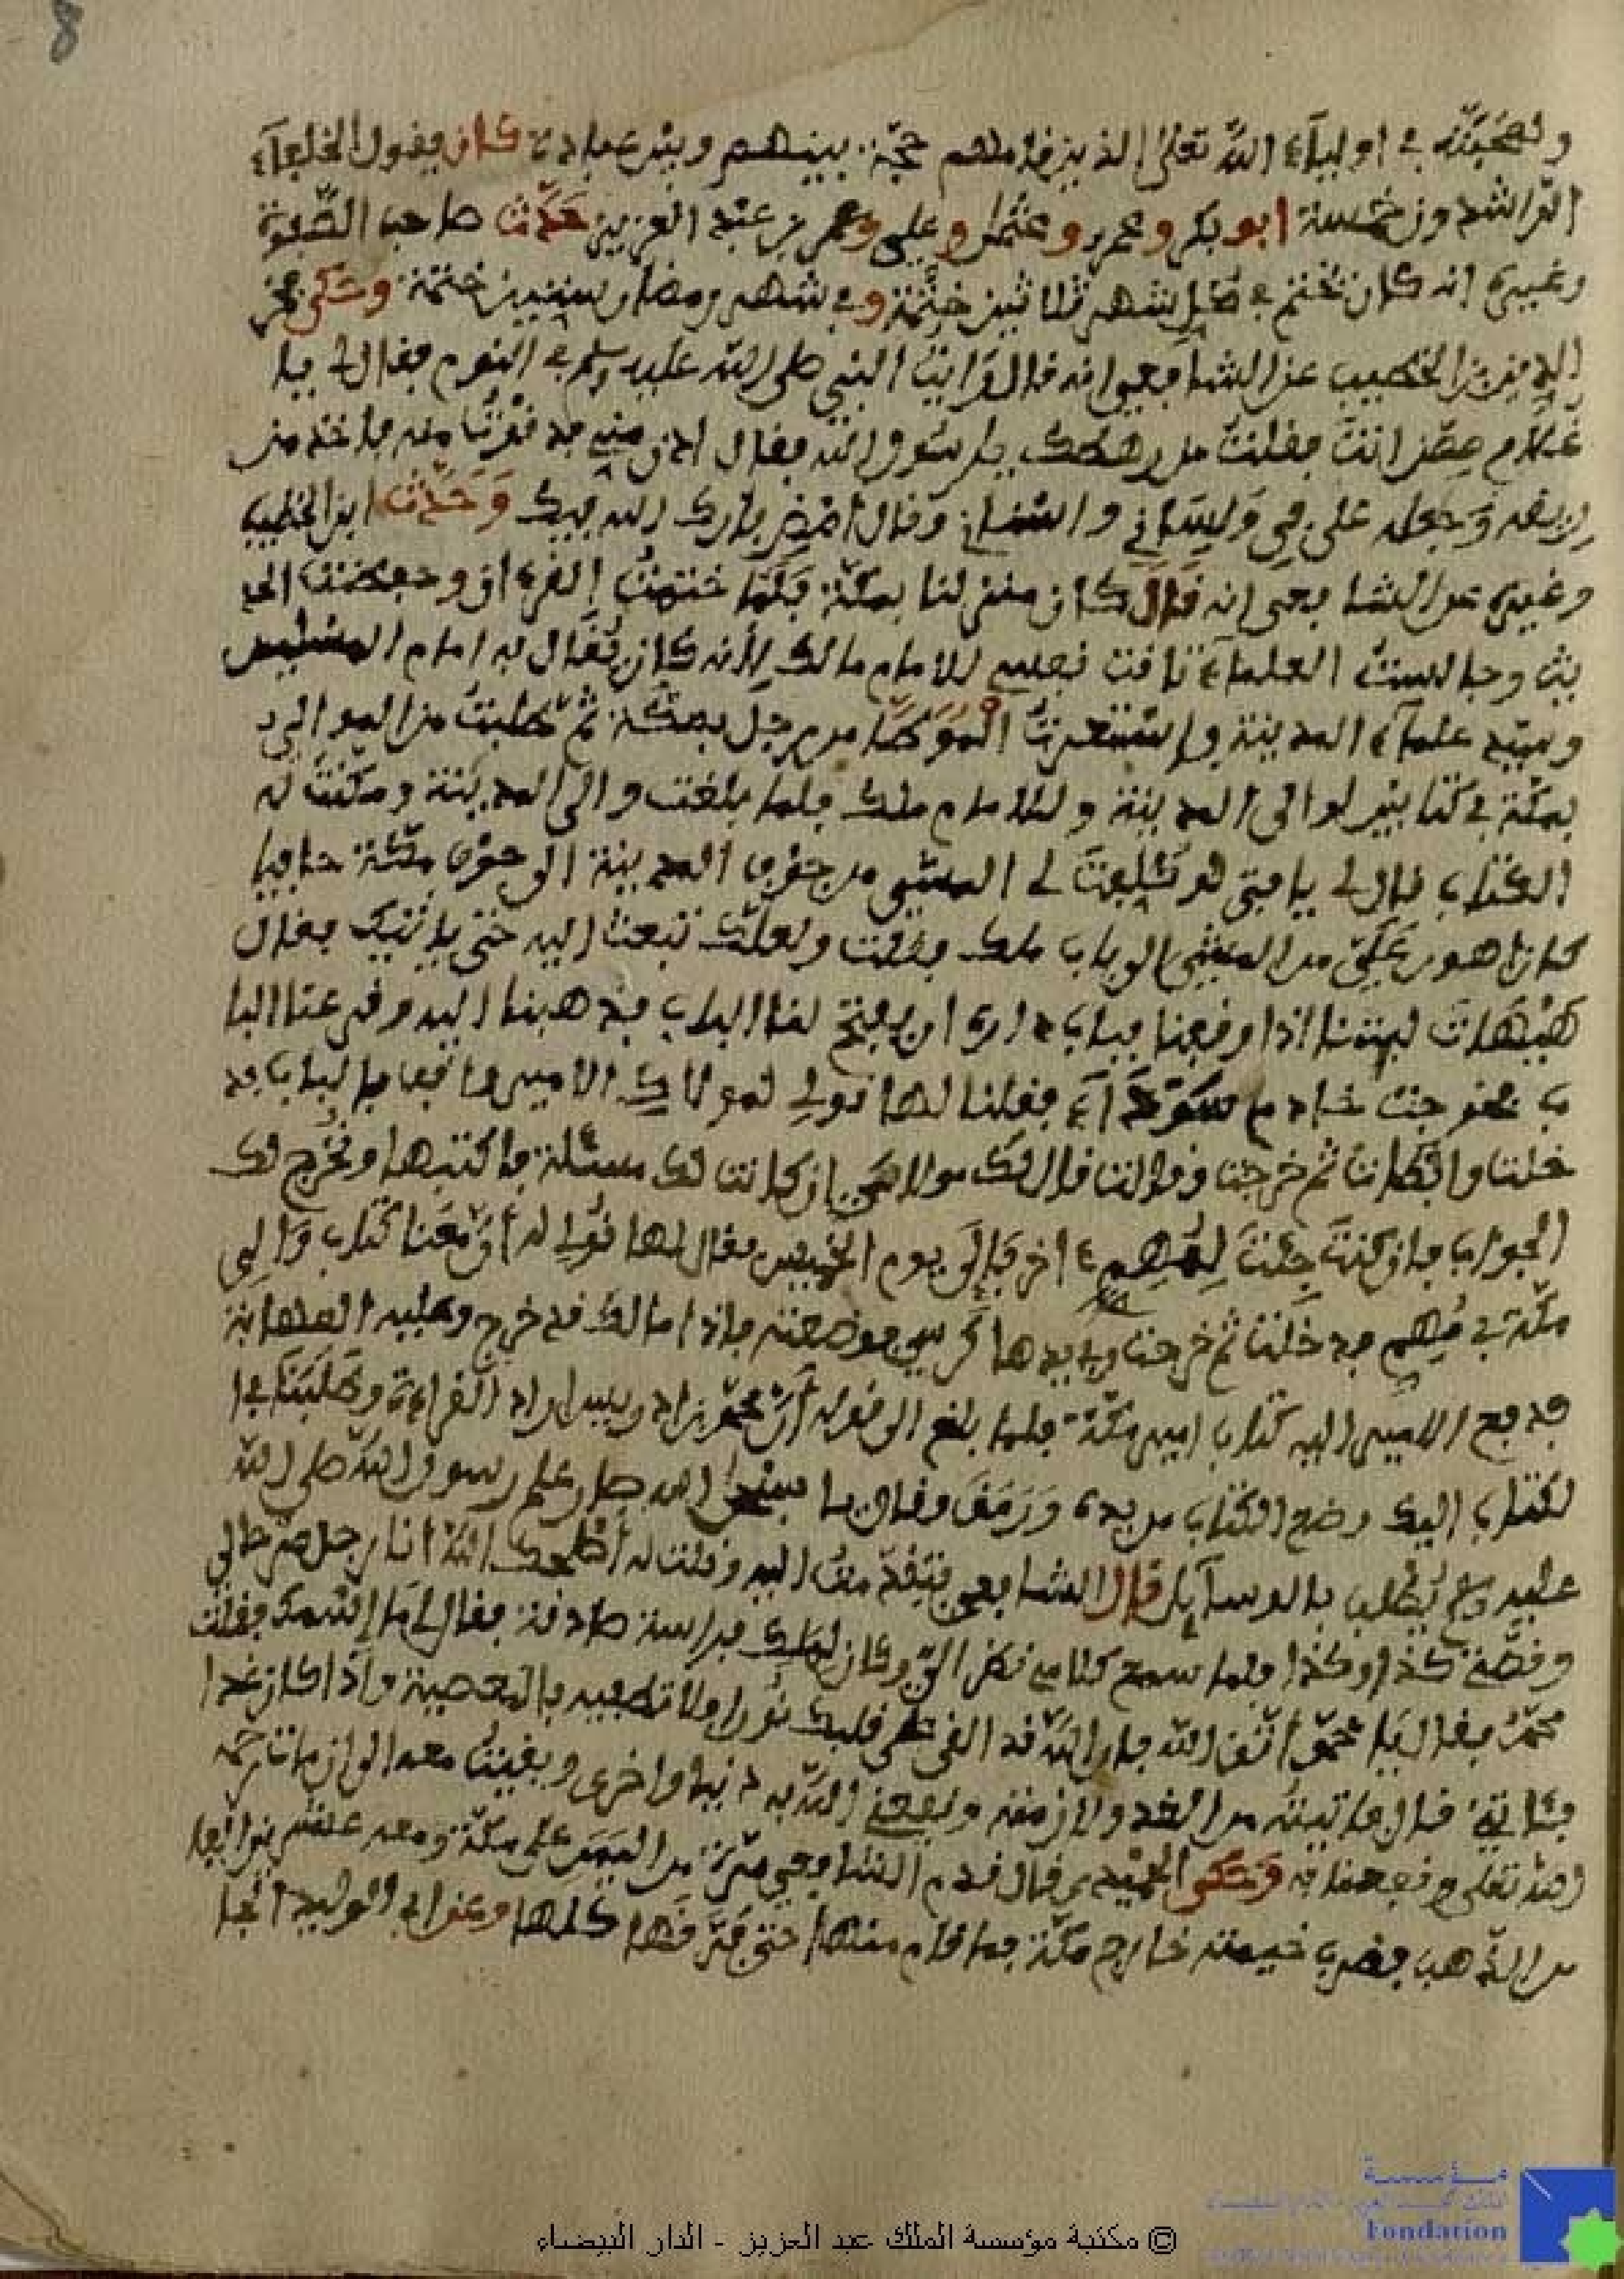 8
ومحبته في اولياء الله تعلى الذين هم حجة بينهم وبين عباده كان يقول الخلفاء
الراشدون خمسة ابو بكر وعمر وعثمن وعلي وعمر بن عبد العزيز حدث صاحب الصفوة
وغيره انه كان يختم في كل شهر ثلاثين ختمة وفي شهر رمضان ستين ختمة وحكى فخر
الدين بن الخطيب عن الشافعي انه قال رايت النبي صلى الله عليه وسلم في النوم فقال لي يا
غلام ممن انت فقلت من رهطك يا رسول الله فقال ادن مني فدنوت منه فاخذ من
ريقه وجعله على في ولساني والشفتان وقال امض بارك الله فيك وحدث ابن الخطيب
وغيره عن الشافعي انه قال كان منزلنا بمكة فلما ختمت القرءان وحفظت الحد
يث وجالست العلماء تاقت نفسي للامام مالك لانه كان يقال له امام المسلمين
وسيد علماء المدينة واستعرت الموطا من رجل بمكة ثم طلبت من الوالي
بمكة في كتابين لوالي المدينة وللامام ملك فلما بلغت والي المدينة ومكنت له
الكتاب قال لي يا فتى لو كلفت لي المشي من جوف المدينة الى جوف مكة حافيا
كان اهون علي من المشي الى باب ملك فقلت ولعلك تبعث اليه حتى ياتيك فقال
هيهات ليتنا اذا وقفنا بباب داره ان يفتح لنا الباب فذهبنا اليه وقرعنا البا
ب فخرجت خادم سوداء فقلنا لها قولي لمولاك الامير واقفا بالباب فد
خلت وابطات ثم خرجت وقالت قال لك مولاي ان كانت لك مسئلة فاكتبها ونخرج لك
الجواب وان كنت جئت لمهم ءاخر فالى يوم الخميس فقال لها قولي له ان معنا كتاب والي
مكة في مهم فدخلت ثم خرجت وفي يدها كرسي فوضعته فاذا مالك قد خرج وعليه المهابة
فدفع الامير اليه كتاب امير مكة فلما بلغ الى قوله ان محمد بن ادريس اراد القراءة وطلبنا في ا
لكتاب اليك وضع الكتاب من يده ورمقه وقال يا سبحن الله صار علم رسول الله صلى الله
عليه وسلم يطلب بالوسائل قال الشافعي فتقدمت اليه وقلت له اصلحك الله انا رجل من حالي
وقصتي كذا وكذا فلما سمع كلامي نظر الي وكان لملك فراسة صادقة فقال لي ما اسمك فقلت
محمد فقال يا محمد اتق الله فان الله قد القى على قلبك نورا ولا تطفيه بالمعصية واذا كان غدا
فتاتي قال فاتيته من الغد ولازمته ونفعني الله به دنيا واخرى وبقيت معه الى ان مات رحمه
الله تعلى ونفعنا به وحكى الحميدي قال قدم الشافعي مرة من اليمن على مكة ومعه عشرين الفا
من الذهب فضرب خيمته خارج مكة فما قام منها حتى فرقها كلها وعن ابي الوليد الجا
مؤسسة
Fondation
© مكتبة مؤسسة الملك عبد العزيز - الدار البيضاء